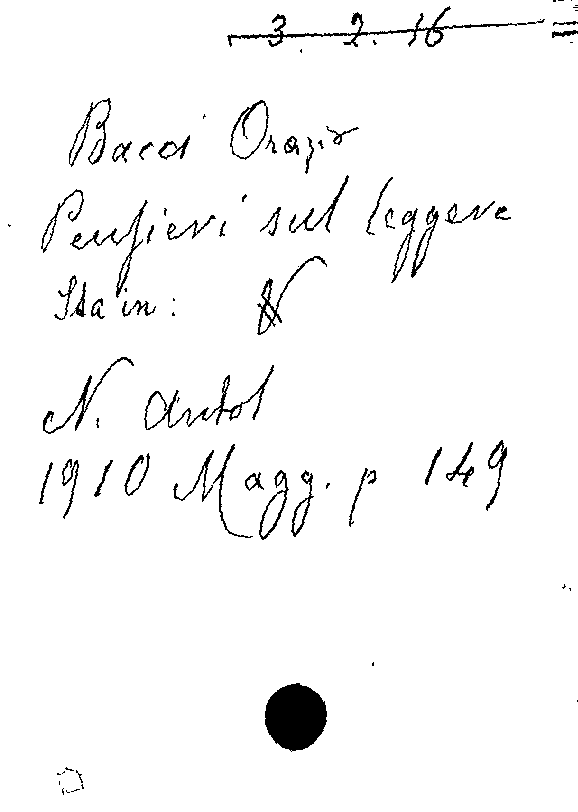 3. 2. 16
Bacci Orazio
Pensieri sul leggere
Sta in: N
N. Antol
1910 Magg. p 149